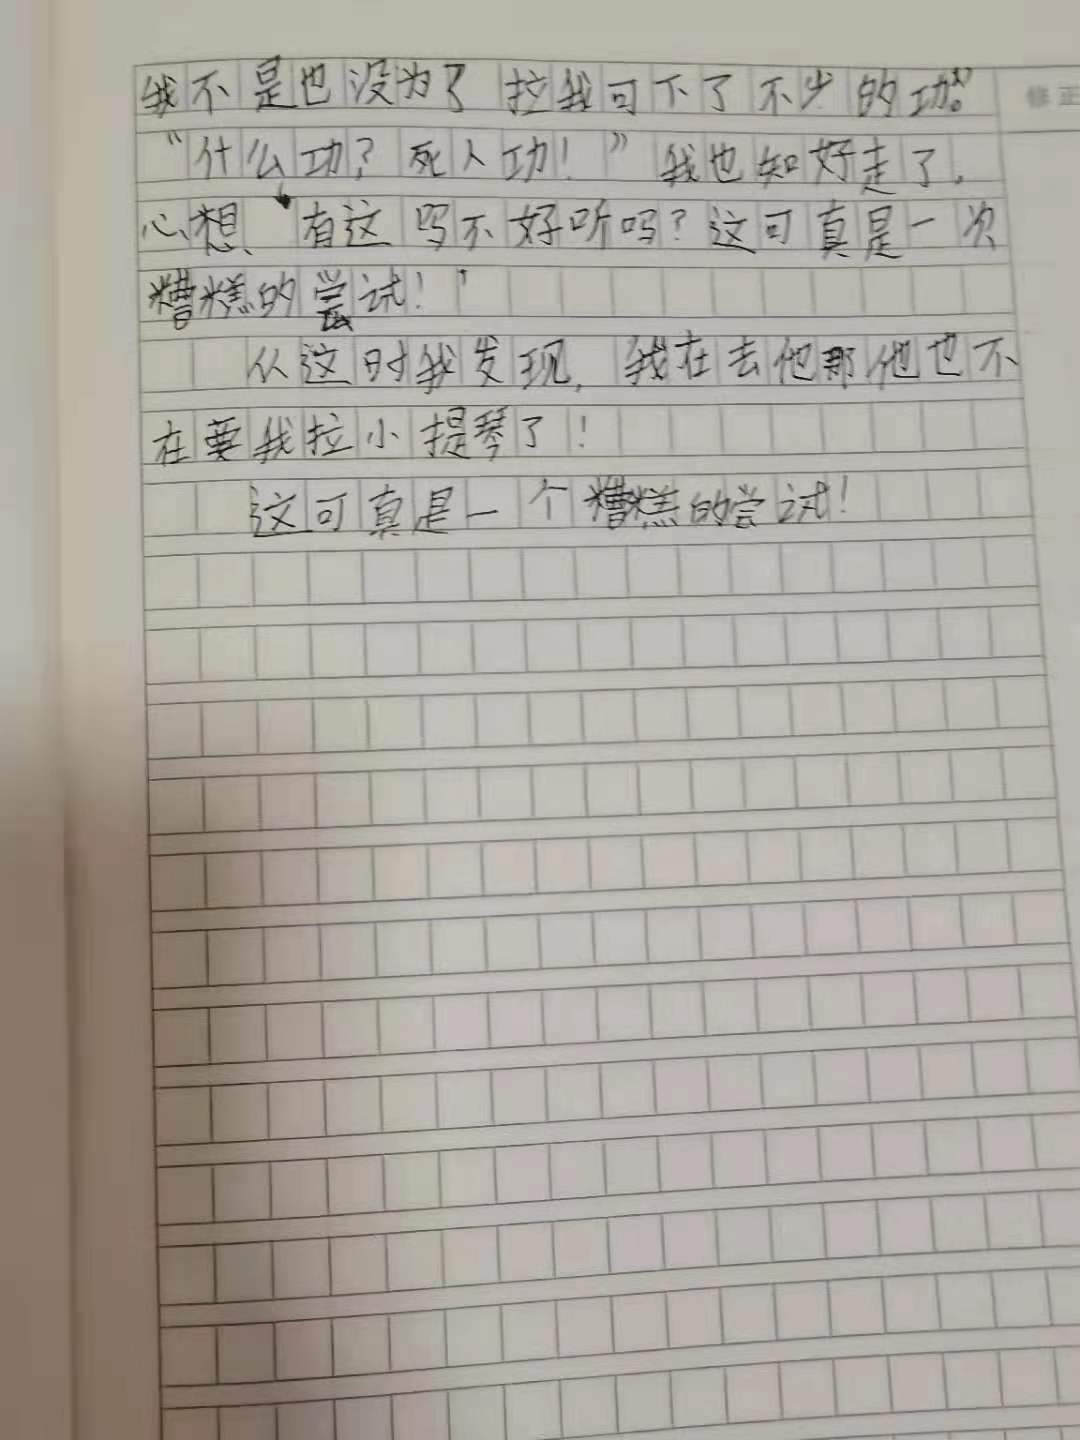 我不是也没为了拉我可下了不少的功。”
“什么功？死人功！”我也知好走了，
心想、‘有这吗不好听吗？这可真是一次
糟糕的尝试！’
从这时我发现，我在去他那他也不
在要我拉小提琴了！
这可真是一个糟糕的尝试！
修正